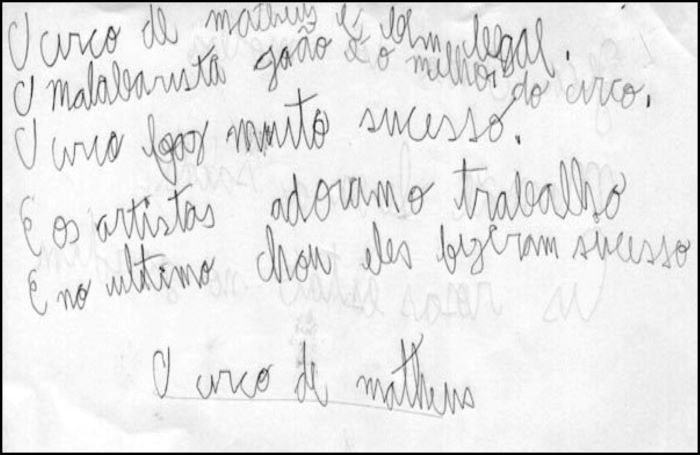 O circo de matheus é bem legal.
O malabarista goão é o milhor do circo.
O circo fas muito sucesso.
E os artistas adoramo trabalho
E no ultimo chou eles fizeram sucesso
O circo de matheus